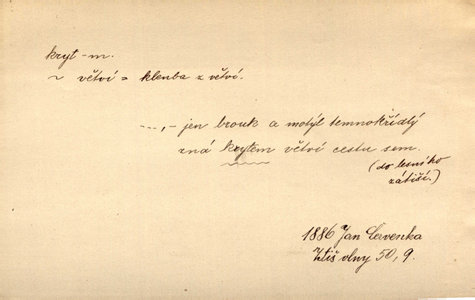 kryt -m.
~ větví = klenba z větví.
---,- jen brouk a motýl temnokřídlý
zná krytem větví cestu sem.
(do lesního
zátiší.)
1886 Jan Červenka
Ztiš vlny 50, 9.